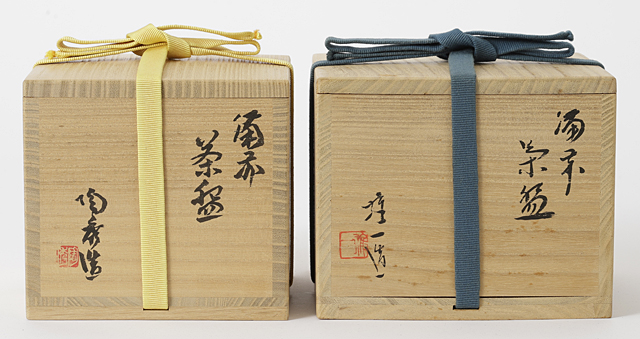 備前
茶盌
陶秀造
備前
茶盌
雄一造